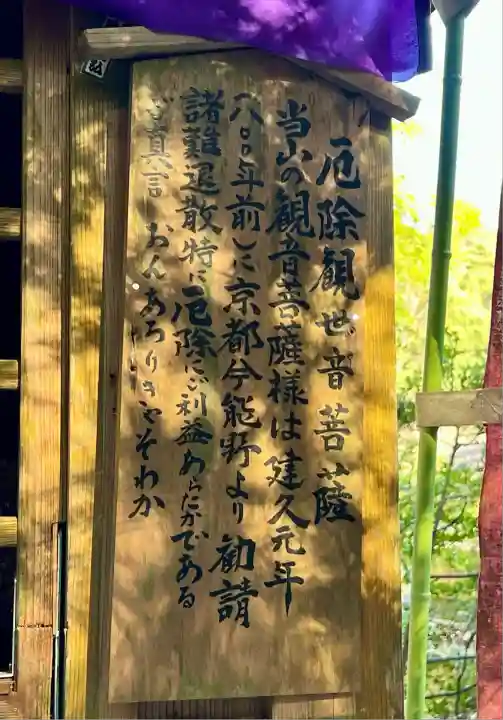 厄除観世音菩薩
当山の観音菩薩様は建久元年
八〇〇年前しに京都今熊野より勧請
諸難退散特に厄除にご利益あらたかである
ご真言 おんあろりきゃそわか